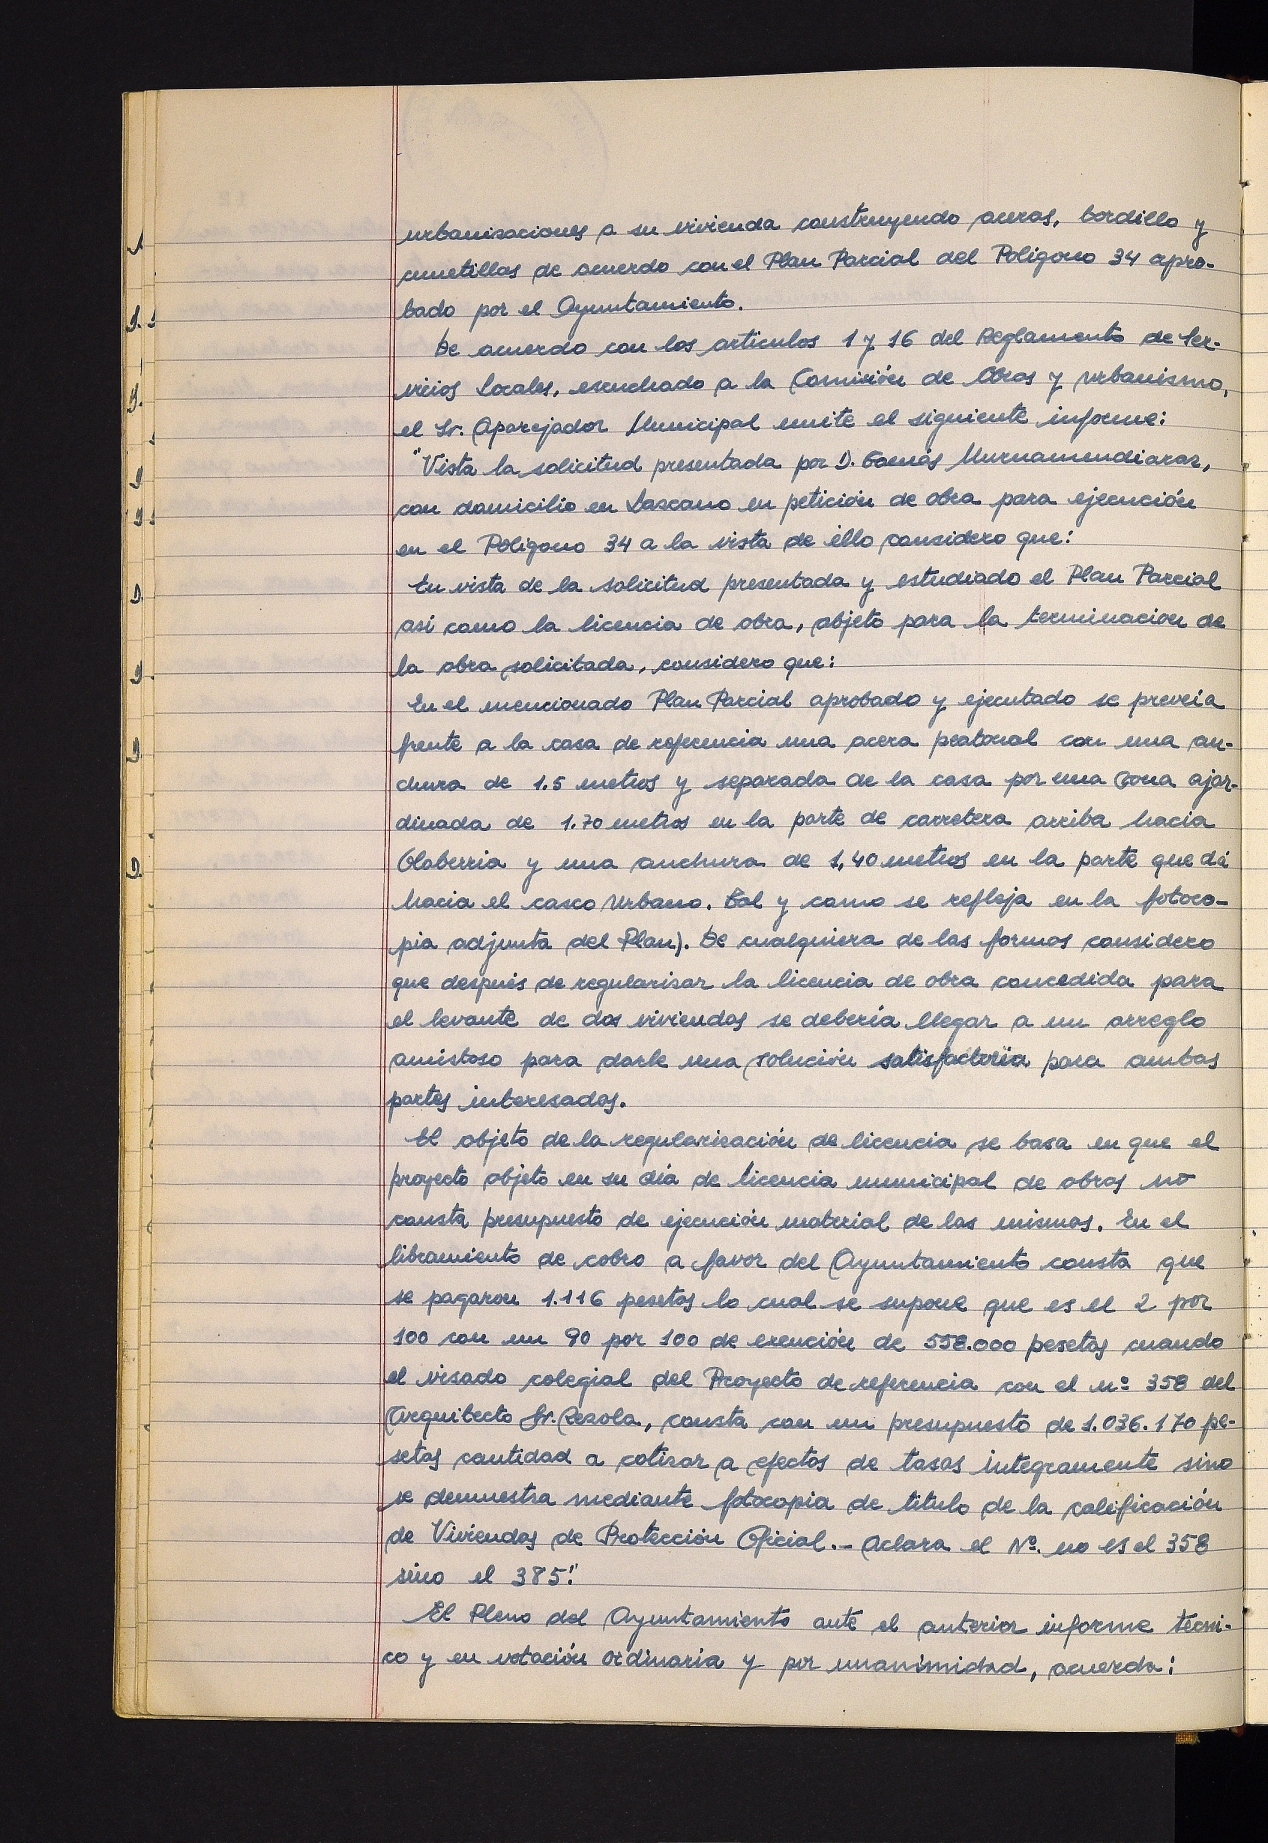 urbanizaciones a su vivienda construyendo aceras, bordillo y
cunetillas de acuerdo con el Plan Parcial del Poligono 34 apro-
bado por el Ayuntamiento.
De acuerdo con los articulos 1 y 16 del Reglamento de Ser-
vicios Locales, escuchado a la Comisión de Obras y Urbanismo,
el Sr. Aparejador Municipal emite el siguiente informe:
"Vista la solicitud presentada por D. Tomás Murnamendiaraz,
con domicilio en Lazcano en petición de obra para ejecución
en el Poligono 34 a la vista de éllo considero que:
En vista de la solicitud presentada y estudiado el Plan Parcial
asi como la licencia de obra, objeto para la terminación de
la obra solicitada, considero que:
En el mencionado Plan Parcial aprobado y ejecutado se preveia
frente a la casa de referencia una acera peatonal con una an-
chura de 1.5 metros y separada de la casa por una zona ajar-
dinada de 1.70 metros en la parte de carretera arriba hacia
Olaberria y una anchura de 1,40 metros en la parte que dá
hacia el casco Urbano. Tal y como se refleja en la fotoco-
pia adjunta del Plan). De cualquiera de las formas considero
que después de regularizar la licencia de obra concedida para
el levante de dos viviendas se deberia llegar a un arreglo
amistoso para darle una solución satisfactoria para ambas
partes interesadas.
El objeto de la regularización de licencia se basa en que el
proyecto objeto en su dia de licencia municipal de obras no
consta presupuesto de ejecución material de las mismas. En el
libramiento de cobro a favor del Ayuntamiento consta que
se pagaron 1.116 pesetas lo cual se supone que es el 2 por
100 con un 90 por 100 de exención de 558.000 pesetas cuando
el visado colegial del Proyecto de referencia con el nº 358 del
Arquitecto Sr. Rezola, consta con un presupuesto de 1.036.170 pe-
setas cantidad a cotizar a efectos de tasas integramente sino
se demuestra mediante fotocopia de titulo de la calificación
de Viviendas de Protección Oficial.- Aclara el Nº. no es el 358
sino el 385."
El Pleno del Ayuntamiento ante el anterior informe técni-
co y en votación ordinaria y por unanimidad, acuerda: